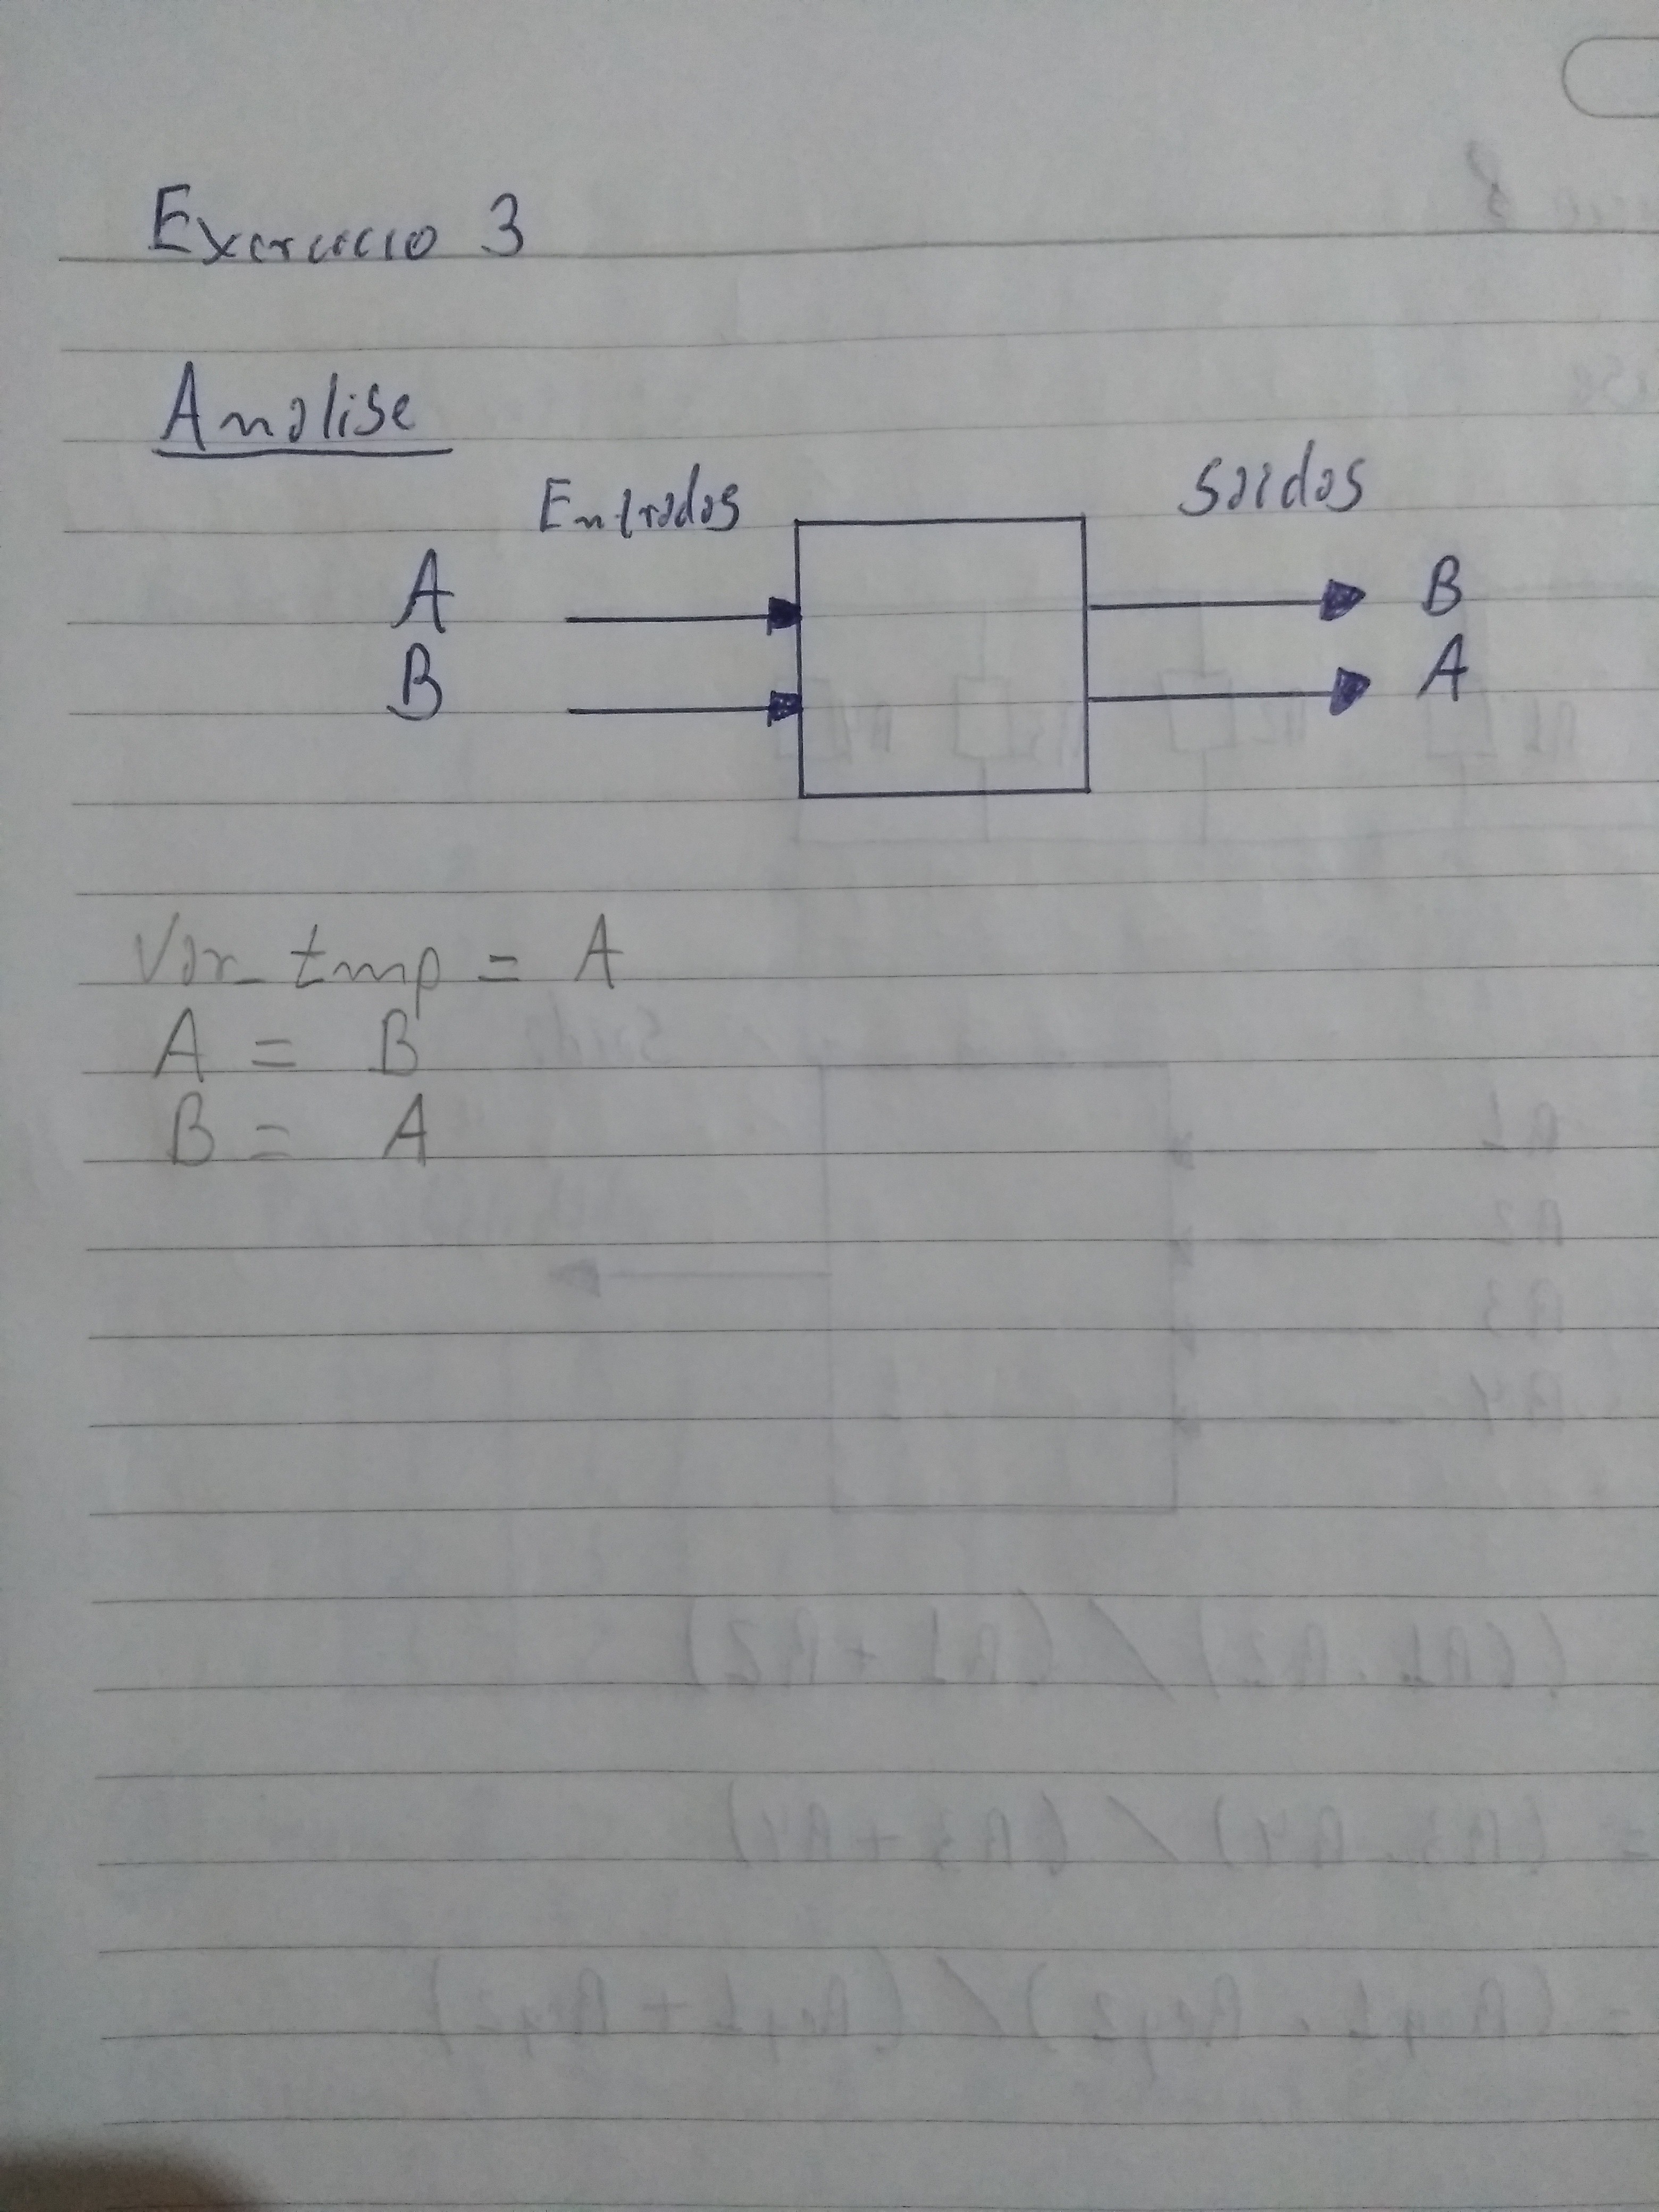 Exercicio 3
Análise
Entradas Saídas
A B
B A
Var_tmp = A
A = B
B = A